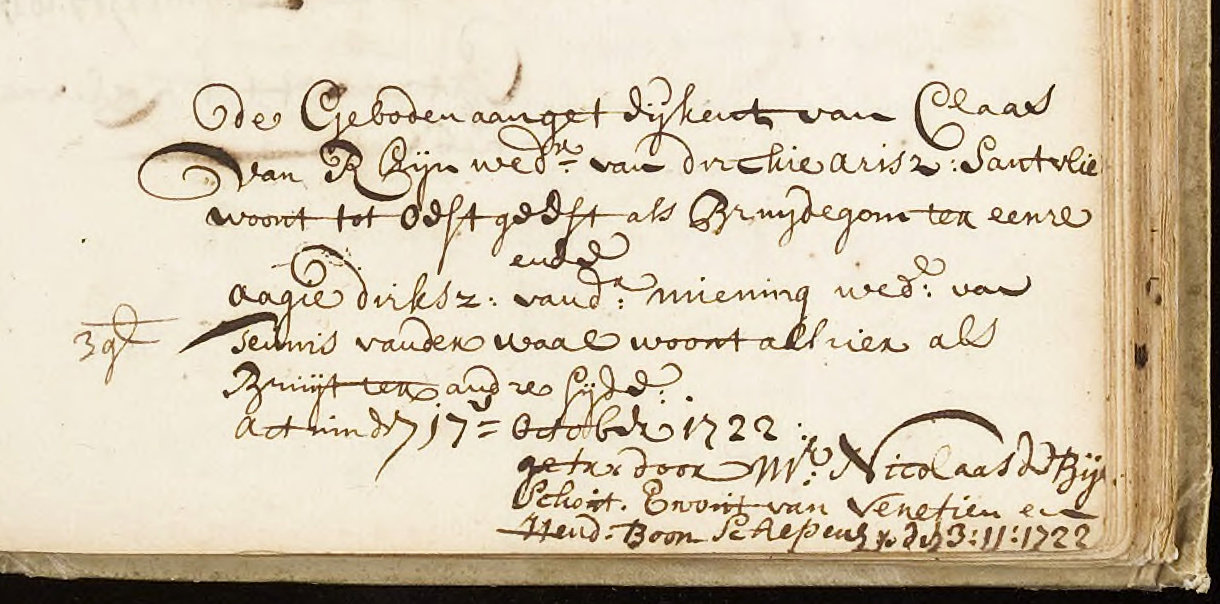 de Geboden aanget dijkent van Claas
van R Rijn wedr: van dirckie arisz: Santvlie
woont tot Oestgeest als Bruijdegom ter eenre
ende
aagie dirksz: vandr: miening wede: van
Teunis vander waal woont alhier als
Bruijt ter andre sijde.
actum den 17= October 1722:
getr: door Mr: Nicolaas de Bije
Schout. van Venetien en
Hend: Boon Schepens den 3:11:1722
3 gl